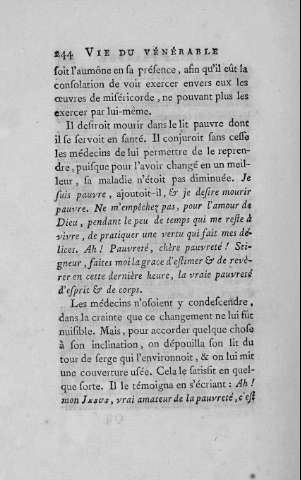 244 VIE DU VÉNÉRABLE
ſoit l'aumône en ſa préſence, afin qu'il eût la
conſolation de voir exercer envers eux les
œuvres de miſéricorde, ne pouvant plus les
exercer par lui-même.
Il deſiroit mourir dans le lit pauvre dont
il ſe ſervoit en ſanté. Il conjuroit ſans ceſſe
les médecins de lui permettre de le repren-
dre, puiſque pour l'avoir changé en un meil-
leur, ſa maladie n'étoit pas diminuée. Je
ſuis pauvre, ajoutoit-il, & je deſire mourir
pauvre. Ne m'empêchez pas, pour l'amour de
Dieu, pendant le peu de temps qui me reſte à
vivre, de pratiquer une vertu qui fait mes dé-
lices. Ah! Pauvreté, chère pauvreté! Sei-
gneur, faites moi la grace d'eſtimer & de révé-
rer en cette dernière heure, la vraie pauvreté
d'eſprit & de corps.
Les médecins n'oſoient y condeſcendre,
dans la crainte que ce changement ne lui fût
nuiſible. Mais, pour accorder quelque choſe
à ſon inclination, on dépouilla ſon lit du
tour de ſerge qui l'environnoit, & on lui mit
une couverture uſée. Cela le ſatisfit en quel-
que ſorte. Il le témoigna en s'écriant: Ah!
mon JESUS, vrai amateur de la pauvreté, c'eſt